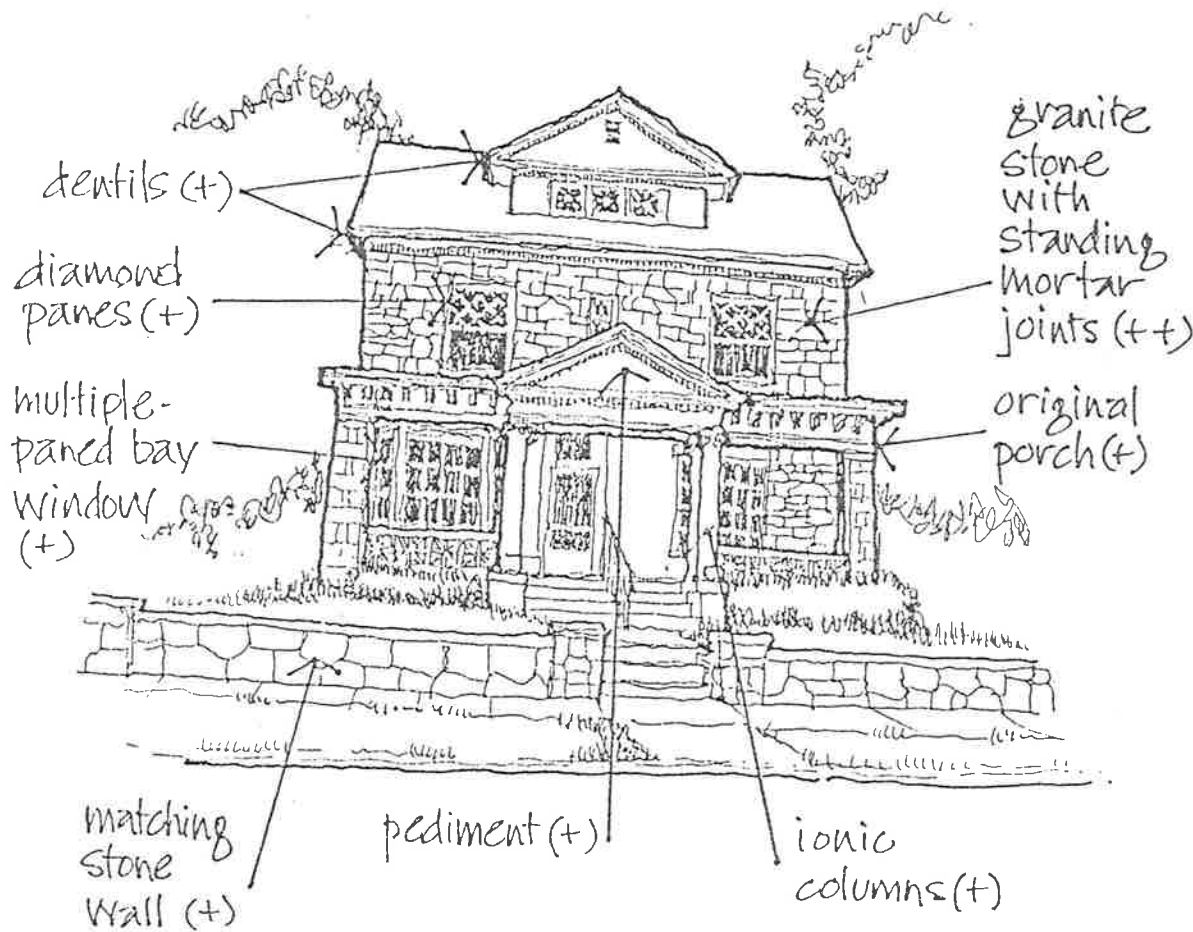 dentils (+)
diamond
panes (+)
multiple-
paned bay
window
(+)
granite
stone
with
standing
mortar
joints (++)
original
porch (+)
matching
stone
wall (+)
pediment (+)
ionic
columns (+)